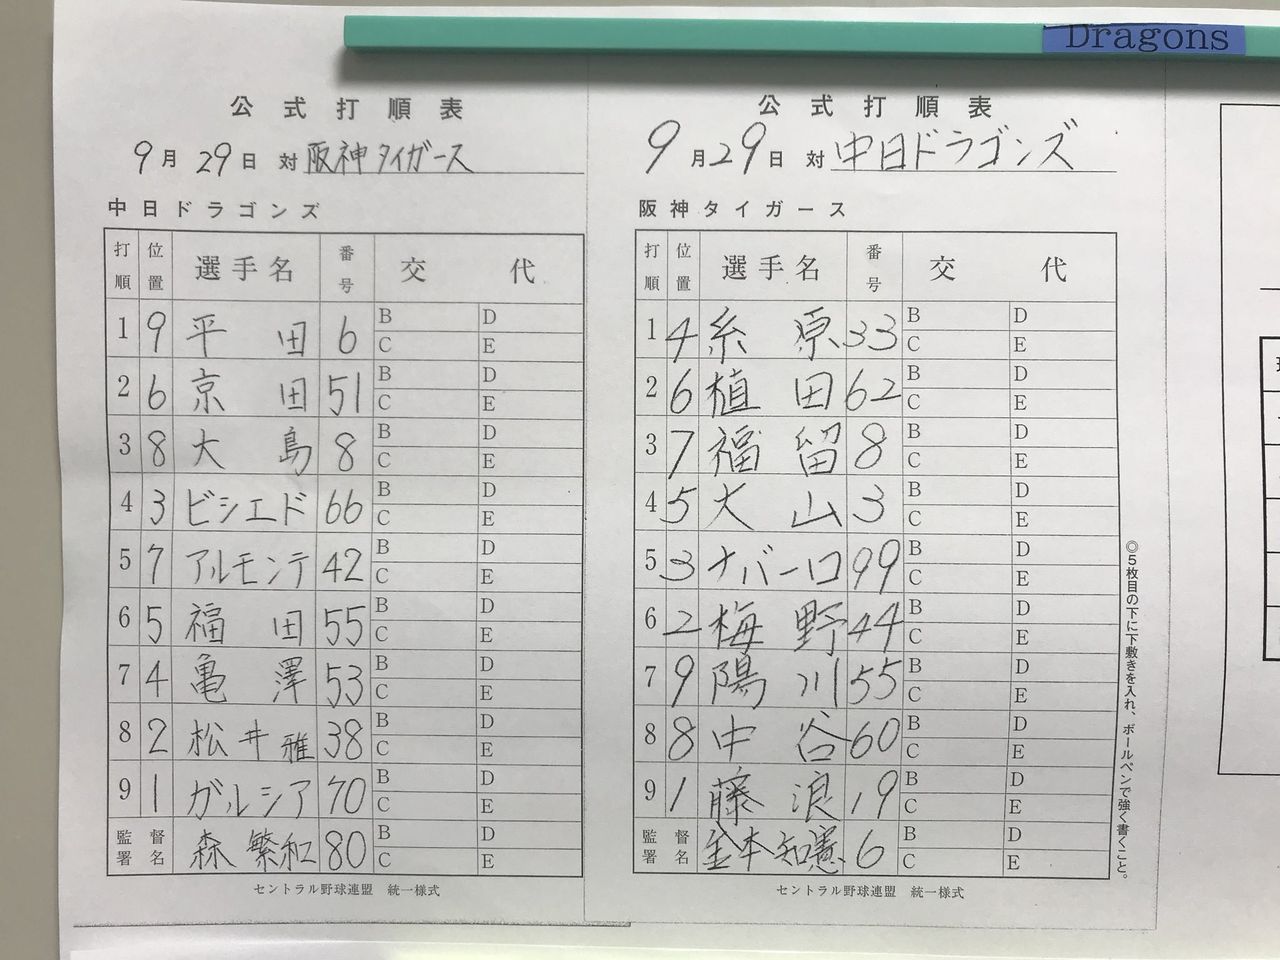 Dragons
公式打順表
9月29日 対 阪神タイガース
中日ドラゴンズ
打順 位置 選手名 番号 交代
1 9 平田 6 B D C E
2 6 京田 51 B D C E
3 8 大島 8 B D C E
4 3 ビシエド 66 B D C E
5 7 アルモンテ 42 B D C E
6 5 福田 55 B D C E
7 4 亀澤 53 B D C E
8 2 松井雅 38 B D C E
9 1 ガルシア 70 B D C E
監督署名 森繁和 80 B D C E
セントラル野球連盟 統一様式
公式打順表
9月29日 対 中日ドラゴンズ
阪神タイガース
打順 位置 選手名 番号 交代
1 4 糸原 33 B D C E
2 6 植田 62 B D C E
3 7 福留 8 B D C E
4 5 大山 3 B D C E
5 3 ナバーロ 99 B D C E
6 2 梅野 44 B D C E
7 9 陽川 55 B D C E
8 8 中谷 60 B D C E
9 1 藤浪 19 B D C E
監督署名 金本知憲 6 B D C E
セントラル野球連盟 統一様式
◎5枚目の下に下敷きを入れ、ボールペンで強く書くこと。